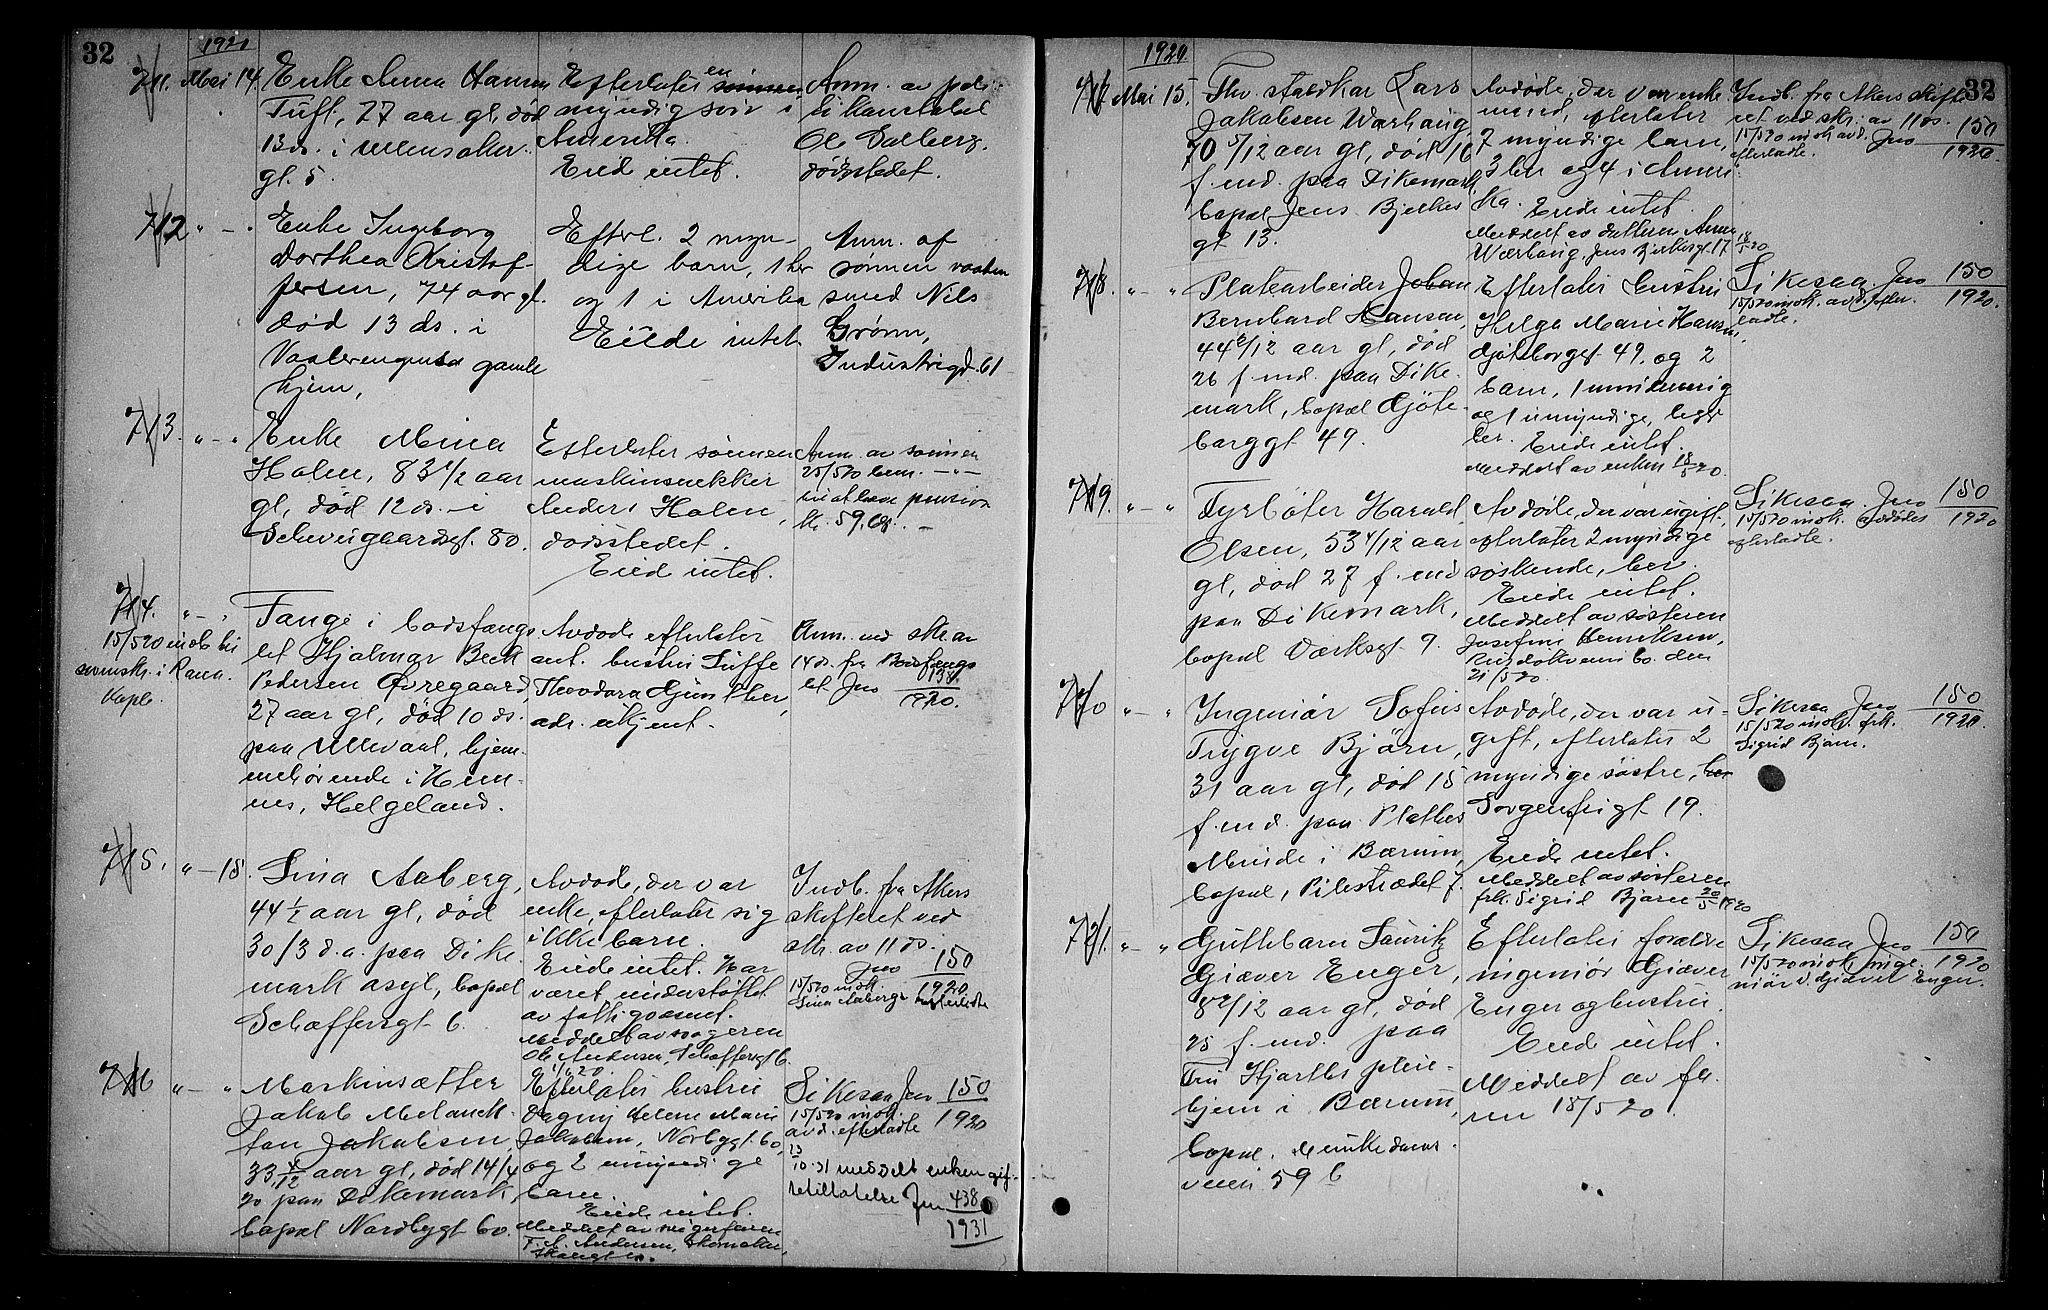 32
1920
711. Mai 14. Enke Anna Hansen
Tuft, 77 aar gl, død
13 ds. i Ullensaker
gt. 5.
Efterlater en sønnen
myndig søn i
Amerika.
Eied intet.
Anm. av poli
tikonstabel
Ole Dalberg.
dødsstedet.
712 " - " Enke Ingeborg
Dorthea Kristof-
fersen, 74 aar gl.
død 13 ds. i
Vaalerengens gamle
hjem,
Efterl. 2 myn-
dige barn, 1 her
og 1 i Amerika
Eiede intet
Anm. af
sønnen
smed Nils
Grønn,
Industrigd. 61
713. " - " Enke Mina
Holen, 83 1/2 aar
gl, død 12 ds. i
Schweigaardsgt. 80.
Efterlater sønnen
maskinsnekker
Anders Holen,
dødsstedet.
Eied intet.
Anm. av sønnen
25/5 20 bem. - " -
in at have pension
kr. 59.
714. " - "
15/5 20 indb. til
sorenskr. i Rana.
Kopib.
Fange i Bodsfæng-
let Hjalmar Beck
Pedersen Øvregaard,
27 aar gl, død 10 ds.
paa Ullevaal, hjem-
mehørende i Hem-
nes, Helgeland.
Avdøde efterlater
ant. hustru Siffe
Theodora Günther,
adr. ukjent.
Anm. ved skr. av
14 ds. fra Bodsfængs
let Jno 138
1920.
715. " - 15. Lina Aaberg,
44 1/2 aar gl, død
30/3 d.a. paa Dike-
mark asyl, bopæl
Schæffersgt 6.
Avdøde, der var
enke, efterlater sig
ikke barn.
Eiede intet. Har
været understøttet
av fattigvæsenet.
Meddelt av svogeren
Ole Andersen, Schæffersgt 6.
Indb. fra Akers
skifteret ved
skr. av 11 ds.
Jno 150
1920
15/5 20 mok.
Lina Aabergs efterladte
716 " - " Maskinsætter
Jakob Melanck-
ton Jakobsen,
33 4/12 aar gl, død 14/4
20 paa Dikemark,
bopæl Nordbygt 60.
Efterlater hustru
Dagny Helene Marie
Jakobsen, Norbygt 60,
og 2 umyndige
barn.
Eiede intet.
Meddelt av svigerfaren
F. A. Andersen, Skomaker,
Likesaa Jno 150
1920
15/5 20 mok.
avd. efterladte
13
10.31 meddelt enken gif-
tetillatelse Jno 438
1931
32
1920
717 Mai 15. Fhv. staldkar Lars
Jakobsen Warhaug
70 5/12 aar gl, død 16
f. md. paa Dikemark
bopæl Jens Bjelkes
gt 13.
Avdøde, der var enke
mand, efterlater
7 myndige barn,
3 her og 4 i Ameri
ka. Eiede intet.
Meddelt av datteren Anna
Wærhaug, Jens Bjelkesgt 17 18/5 20
Indb. fra Akers skifte
ret ved skr. av 11 ds.
15/5 20 mok avd. Jno 150
efterladte. 1920.
718. " - " Platearbeider Johan
Bernhard Hansen,
44 2/12 aar gl, død
26 f. md. paa Dike-
mark, bopæl Gjøte-
borggt 49.
Efterlater hustru
Helga Marie Hansen,
Gjøteborggt 49. og 2
barn, 1 mindreaarig
og 1 umyndige, begge
her. Eiede intet.
Meddelt av enken 18/5 20.
Likesaa. Jno 150
15/5 20 mok. avd. efter- 1920.
ladte.
719. " - " Fyrbøter Harald
Olsen, 53 4/12 aar
gl, død 27 f. md
paa Dikemark,
bopæl Værksgt 9.
Avdøde, der var ugift,
efterlater 2 myndige
søskende, her.
Eiede intet.
Meddelt av søsteren
Josefine Henriksen,
21/5 20
Likesaa Jno 150
15/5 20 mok. avdødes 1920
efterladte.
720 " - " Ingeniør Sofus
Trygve Bjärn,
31 aar gl, død 15
f. md. paa Plathes
Minde i Bærum,
bopæl, Pilestrædet 7.
Avdøde, der var u-
gift, efterlater 2
myndige søstre, her
Sorgenfrigt 19.
Eiede intet.
Meddelt av søsteren
frk. Sigrid Bjärn 20/5 1920
Likesaa Jno 150
15/5 20 mok. frk. 1920.
Sigrid Bjärn.
721. " - " Guttebarn Lauritz
Giæver Enger,
8 2/12 aar gl, død
25 f. md. paa
Fru Hjorths pleie-
hjem i Bærum,
bopæl. Munkedams-
veien 59 b
Efterlater forældre
ingeniør Giæver
Enger og hustru.
Eiede intet.
Meddelt av fa-
ren 15/5 20.
Likesaa Jno 150
15/5 20 mok. inge- 1920
niør Giæver Enger.